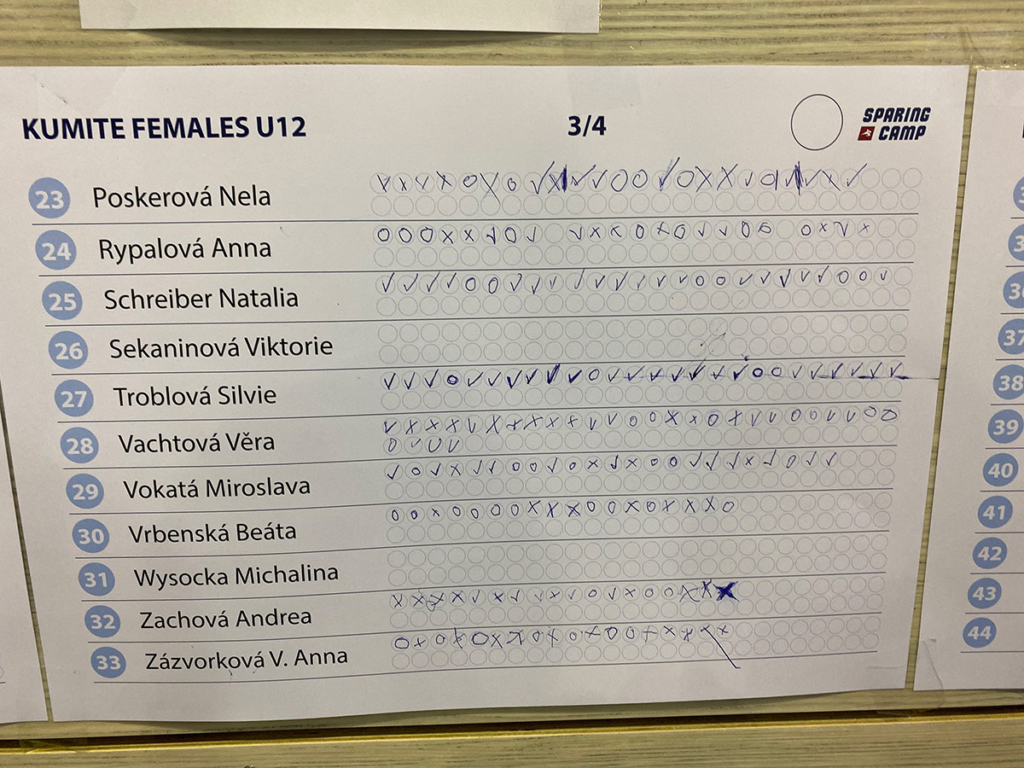 KUMITE FEMALES U12 3/4 SPARING CAMP
23 Poskerová Nela
24 Rypalová Anna
25 Schreiber Natalia
26 Sekaninová Viktorie
27 Troblová Silvie
28 Vachtová Věra
29 Vokatá Miroslava
30 Vrbenská Beáta
31 Wysocka Michalina
32 Zachová Andrea
33 Zázvorková V. Anna
37
38
39
40
41
42
43
44